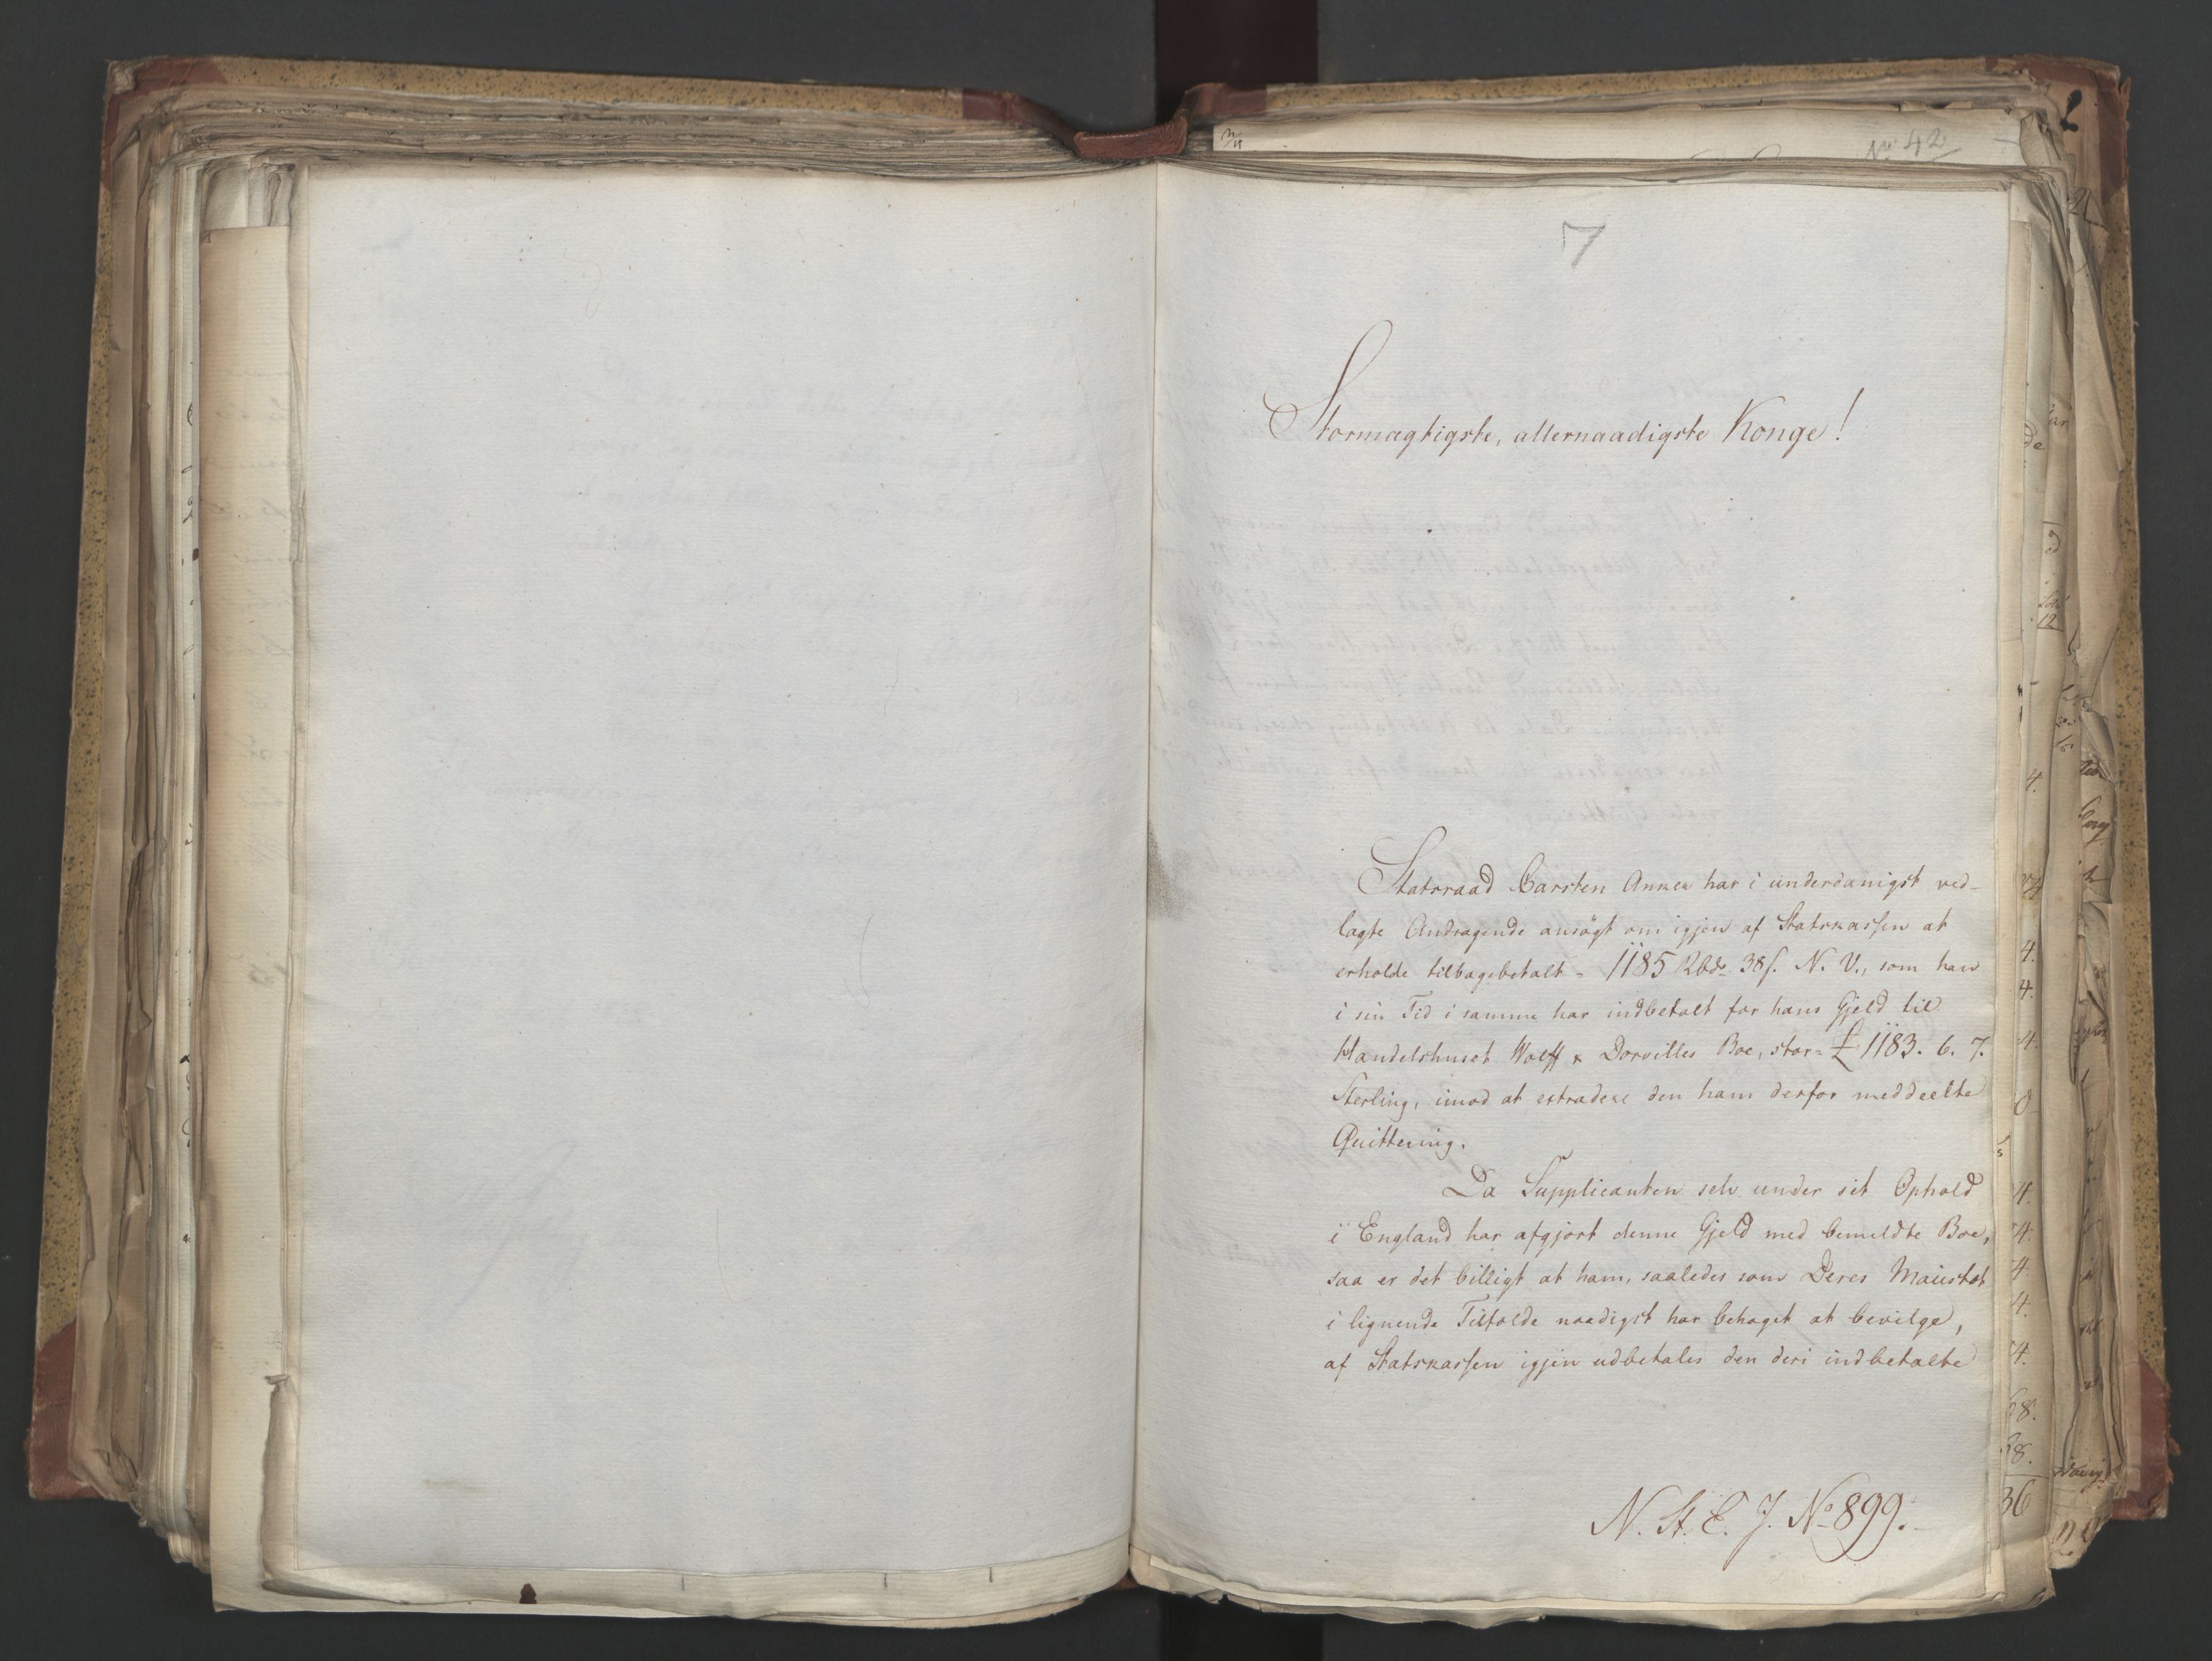 No 42
7
Stormægtigste, allernaadigste Konge!
Statsraad Carsten Anker har i underdanigst ved-
lagte Andragende ansögt om igjen af Statskassen at
erholde tilbagebetalt - 1185 Rbdr 38 s. N. V., som han
i sin Tid i samme har indbetalt for hans Gjeld til
Handelshuset Wolff & Dorvilles Boe, stor = £ 1183. 6. 7.
Sterling, imod at extradere den ham derfor meddeelte
Quittering.
Da Supplicanten selv under sit Ophold
i England har afgjort denne Gjeld med bemeldte Boe,
saa er det billigt at ham, saaledes som Deres Majestæt
i lignende Tilfælde naadigst har behaget at bevilge,
af Statskassen igjen udbetales den deri indbetalte
N. St. C. J. No 899.